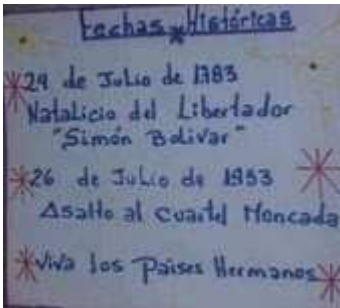 Fechas Históricas
24 de Julio de 1783
Natalicio del Libertador
"Simón Bolivar"
26 de Julio de 1953
Asalto al Cuartel Moncada
Viva los Paises Hermanos